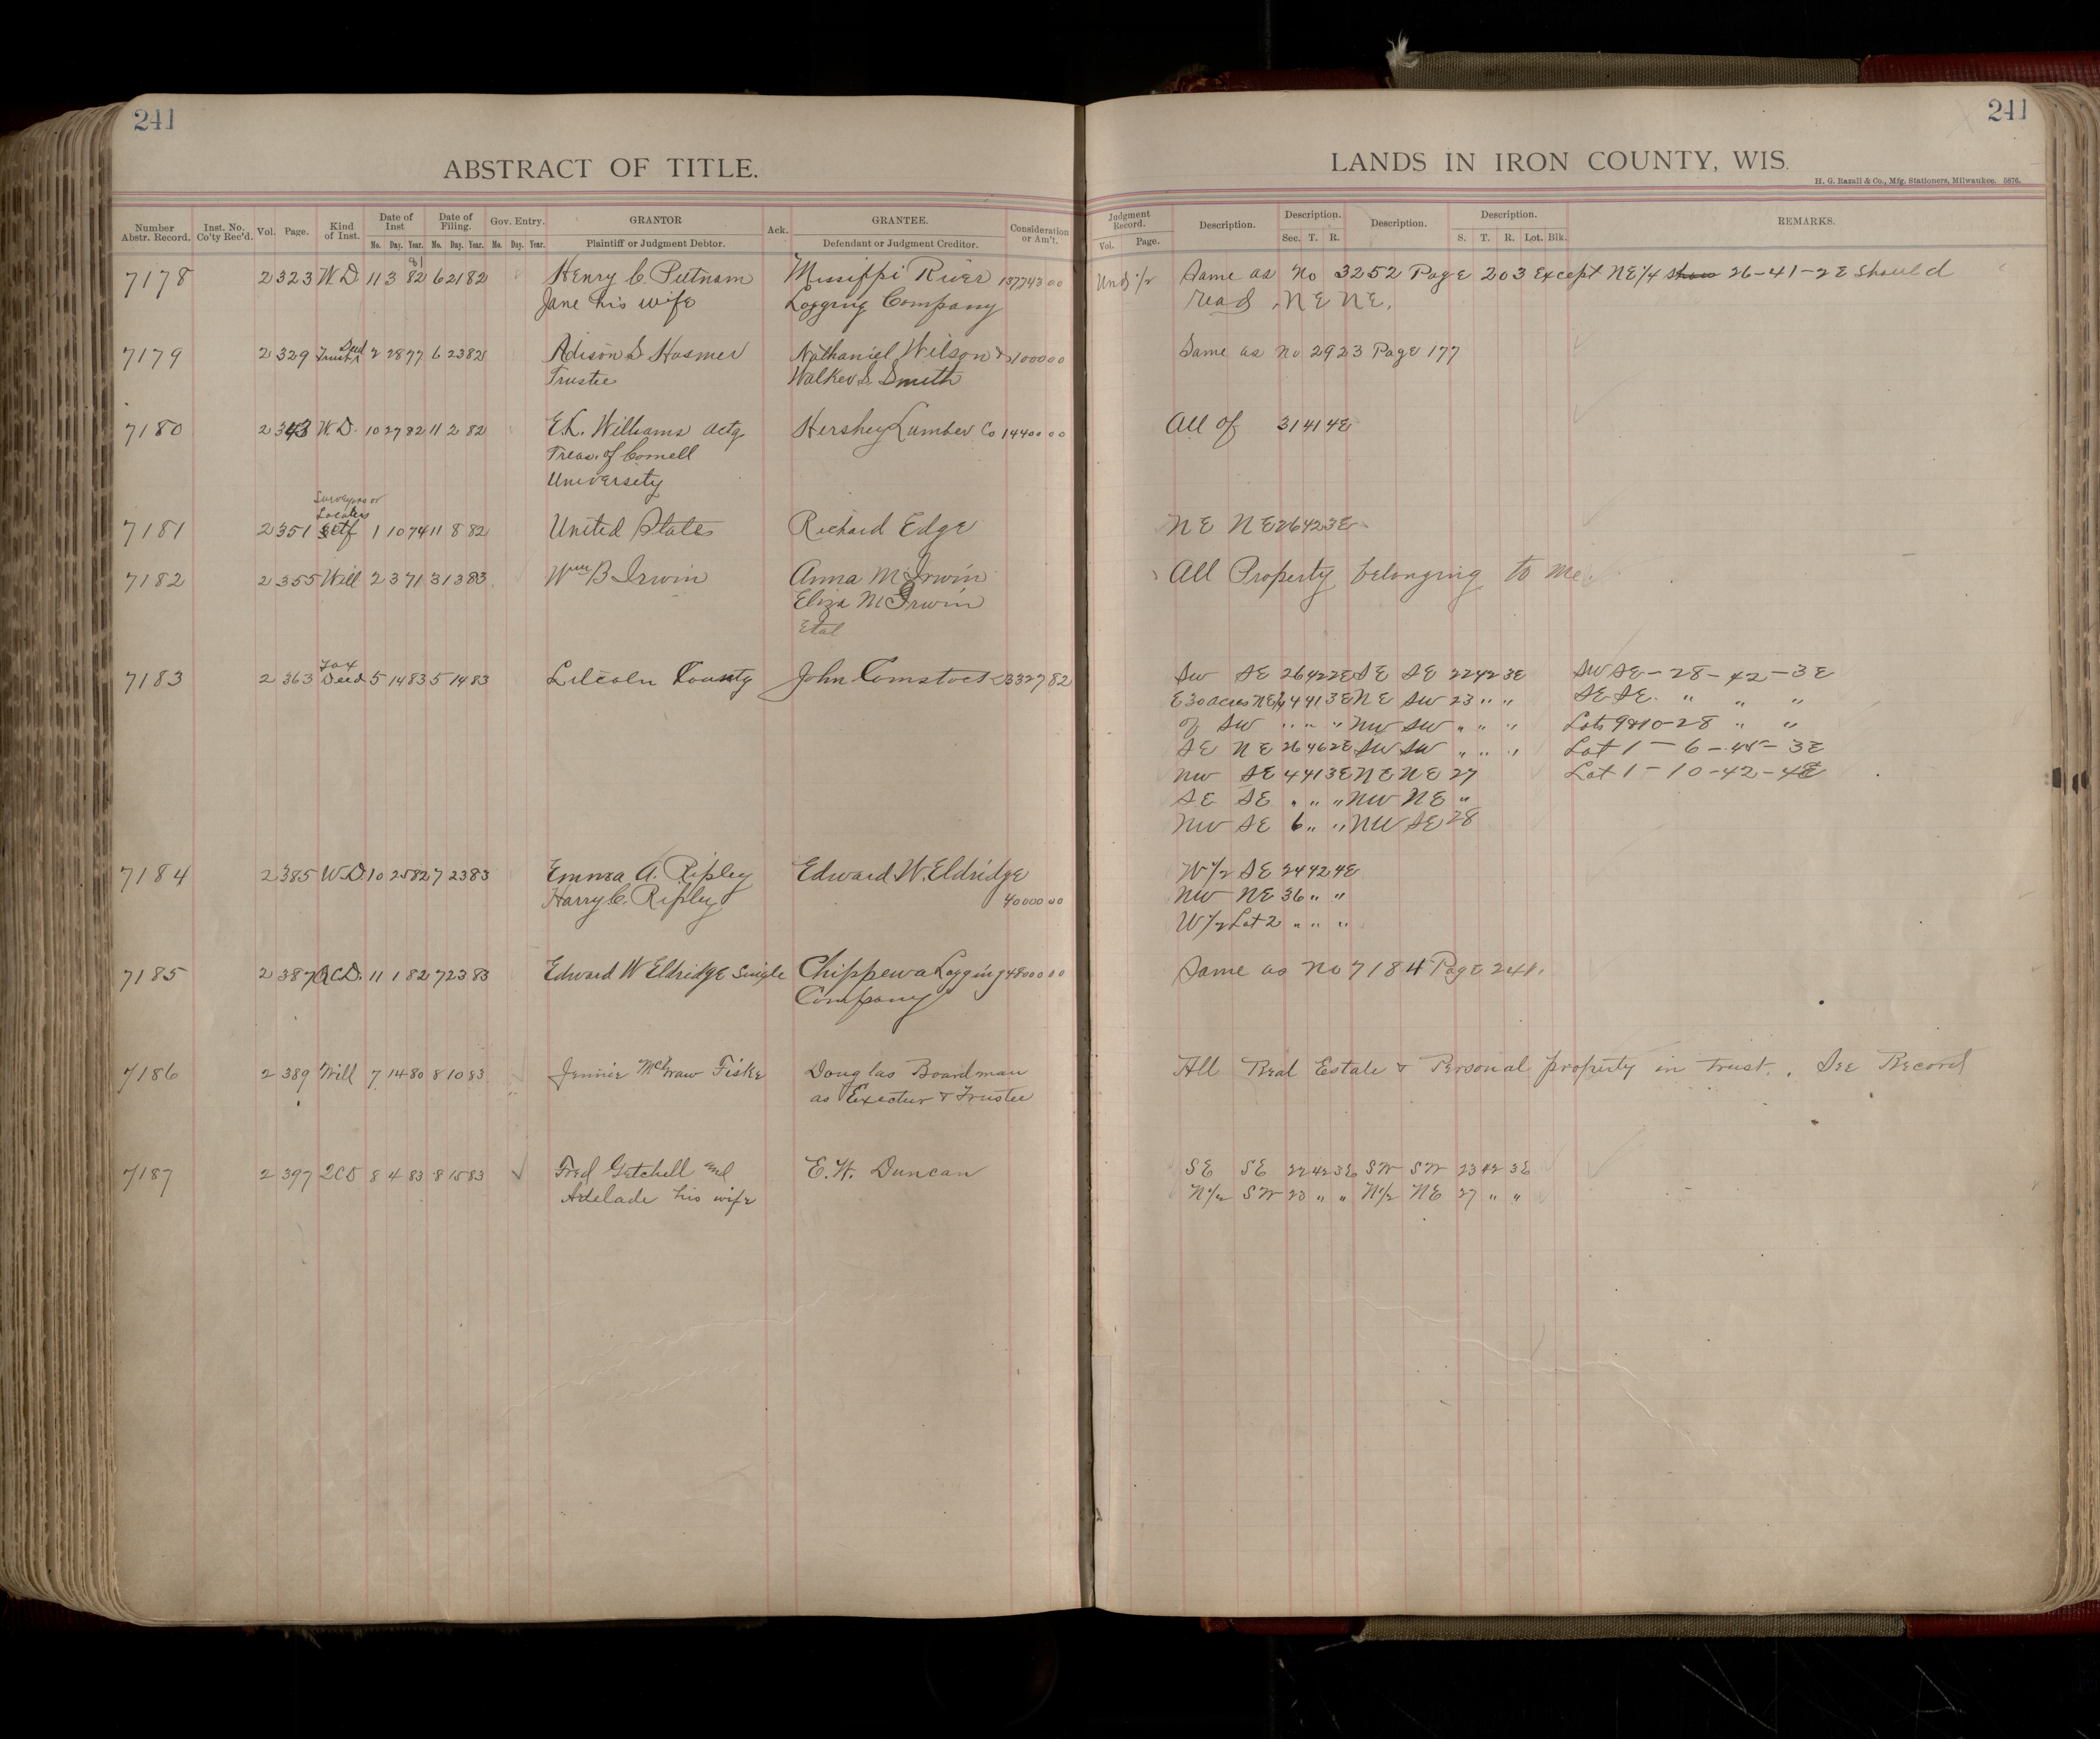 241
241
ABSTRACT OF TITLE.
LANDS IN IRON COUNTY, WIS.
H. G. Razall & Co., Mfg. Stationers, Milwaukee. 5876.
Number Abstr. Record. Inst. No. Co'ty Rec'd. Vol. Page. Kind of Inst. Date of Inst Date of Filing. Gov. Entry. GRANTOR Ack. GRANTEE. Consideration or Am't. Judgment Record. Description. Description. Description. Description. REMARKS.
No. Day. Year. No. Day. Year. No. Day. Year. Plaintiff or Judgment Debtor. Defendant or Judgment Creditor. Vol. Page. Sec. T. R. S. T. R. Lot. Blk.
81
7178 2 323 W.D. 11 3 82 6 21 82 Henry C. Putnam Missippi River 137743 00 Und 1/2 Same as No 3252 Page 203 Except NE 1/4 26-41-2E should
Jane his wife Logging Company read NE NE.
7179 2 329 Trust Deed 2 28 77 6 23 82 Adison S Hosmer Nathaniel Wilson & 1000 00 Same as no 2923 Page 177
Trustee Walker S. Smith
7180 2 343 W.D. 10 27 82 11 2 82 E.L. Williams actg Hershey Lumber Co 14400 00 All of 31 41 4E
Treas. of Cornell
University
Surveyors or
Locaters
7181 2 351 Sctf 1 10 74 11 8 82 United States Richard Edge NE NE 26 42 3E
7182 2 355 Will 2 3 71 3 13 83 Wm B Irwin Anna M Irwin All Property belonging to me
Eliza M Irwin
Etal
7183 2 363 Tax Deed 5 14 83 5 14 83 Lilcoln County John Comstock 3327 82 SW SE 26 42 2E SE SE 22 42 3E SW SE - 28 - 42 - 3E
E 30 acres NE 1/4 4 41 3E NE SW 23 " " SE SE " " "
of SW " " " NW SW " " " Lots 9 & 10 - 28 " "
SE NE 26 46 2E SW SW " " " Lot 1 - 6 - 45 - 3E
NW SE 4 41 3E NE NE 27 Lot 1 - 10 - 42 - 4E
SE SE " " " NW NE "
NW SE 6 " " NW SE 28
7184 2 385 W.D. 10 25 82 7 23 83 Emma A. Ripley Edward W. Eldridge W 1/2 SE 24 42 4E
Harry C. Ripley 40000 00 NW NE 36 " "
W 1/2 Lot 2 " " "
7185 2 387 Q.C.D. 11 1 82 7 23 83 Edward W Eldridge Single Chippewa Logging 48000 00 Same as No 7184 Page 241.
Company
7186 2 389 Will 7 14 80 8 10 83 Jennie McGraw Fiske Douglas Boardman All Real Estate & Personal property in trust. See Record
as Exectur & Trustee
7187 2 397 QCD 8 4 83 8 15 83 ✓ Fred Getchell and E. W. Duncan SE SE 22 42 3E SW SW 23 42 3E
Adelade his wife N 1/2 SW 23 " " N 1/2 NE 27 " "